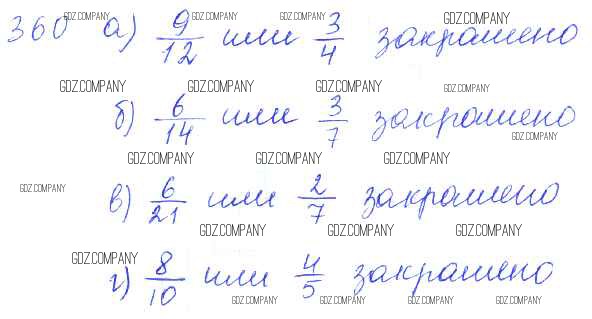 360 а) 9/12 или 3/4 закрашено
б) 6/14 или 3/7 закрашено
в) 6/21 или 2/7 закрашено
г) 8/10 или 4/5 закрашено
GDZ.COMPANY GDZ.COMPANY GDZ.COMPANY GDZ.COMPANY
GDZ.COMPANY GDZ.COMPANY GDZ.COMPANY GDZ.COMPANY
GDZ.COMPANY
GDZ.COMPANY GDZ.COMPANY GDZ.COMPANY
GDZ.COMPANY
GDZ.COMPANY GDZ.COMPANY GDZ.COMPANY
GDZ.COMPANY
GDZ.COMPANY GDZ.COMPANY GDZ.COMPANY GDZ.COMPANY